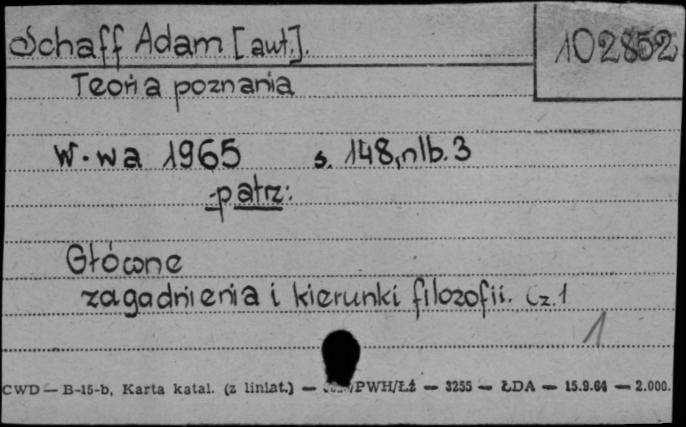 Schaff Adam [aut.].
102852
Teoria poznania
W-wa 1965 s. 148, nlb. 3
patrz:
Główne
zagadnienia i kierunki filozofii. Cz. 1
1
CWD — B-15-b, Karta katal. (z liniat.) — /PWH/Łź — 3255 — ŁDA — 15.9.64 — 2.000.